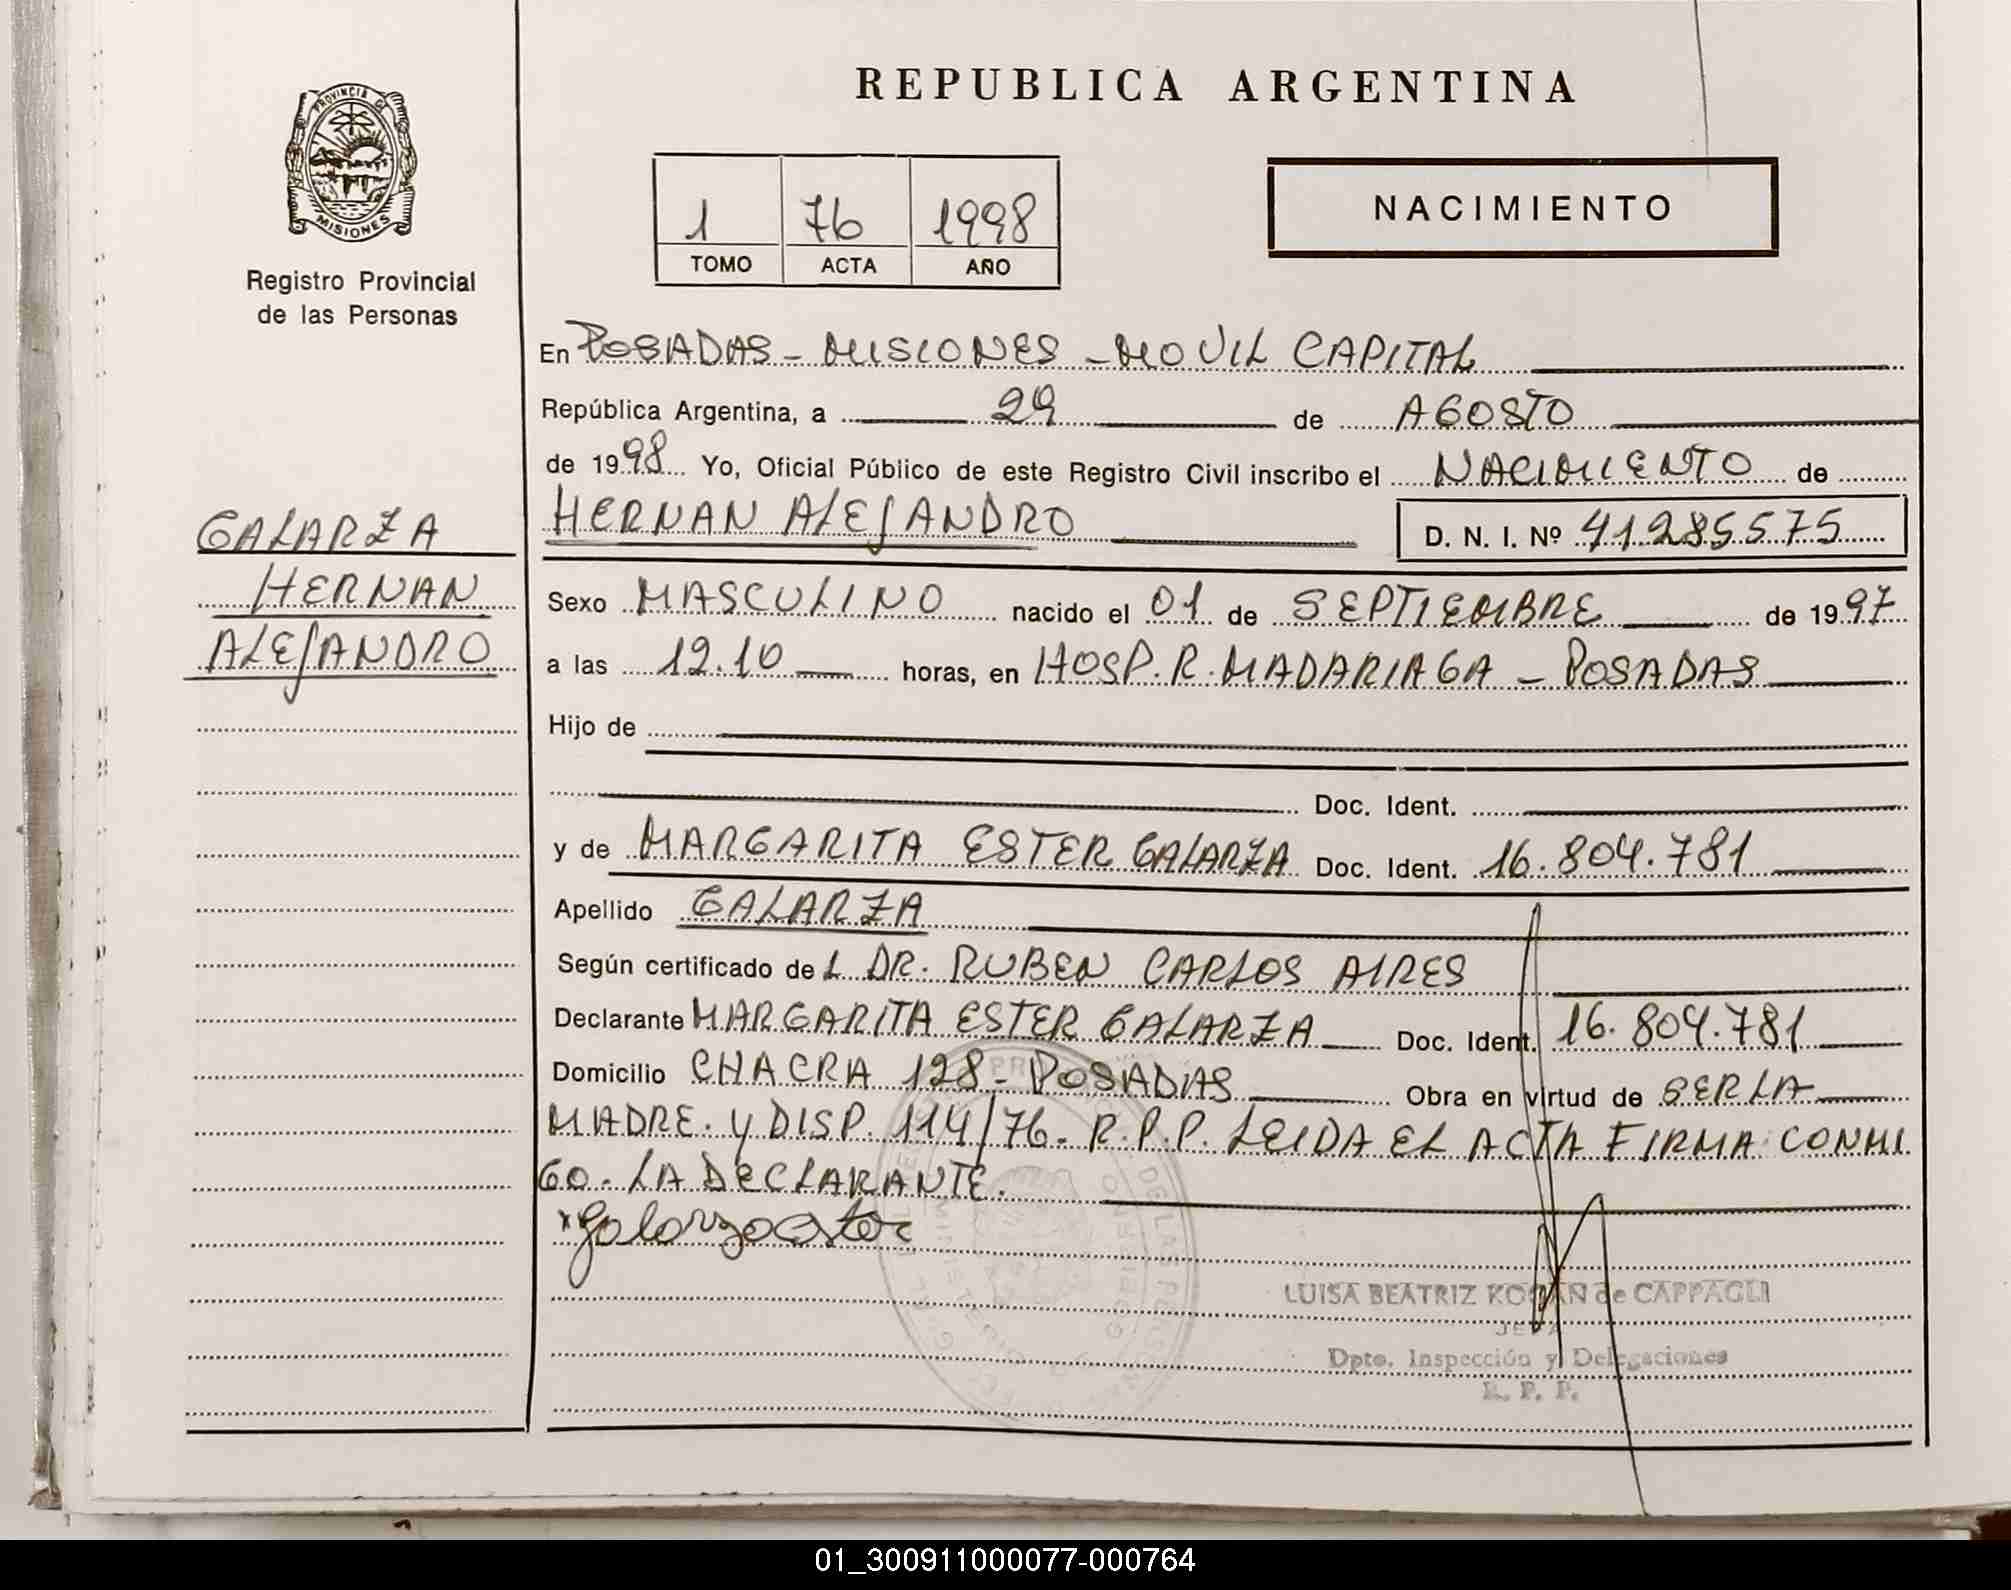 PROVINCIA DE
MISIONES
Registro Provincial
de las Personas
REPUBLICA ARGENTINA
NACIMIENTO
1 76 1998
TOMO ACTA AÑO
En POSADAS - MISIONES - MOVIL CAPITAL
República Argentina, a 29 de AGOSTO
de 1998 Yo, Oficial Público de este Registro Civil inscribo el NACIMIENTO de
HERNAN ALEJANDRO D. N. I. Nº 41285575
GALARZA
HERNAN
ALEJANDRO
Sexo MASCULINO nacido el 01 de SEPTIEMBRE de 1997
a las 12.10 horas, en HOSP. R. MADARIAGA - POSADAS
Hijo de
Doc. Ident.
y de MARGARITA ESTER GALARZA Doc. Ident. 16.804.781
Apellido GALARZA
Según certificado del DR. RUBEN CARLOS AIRES
Declarante MARGARITA ESTER GALARZA Doc. Ident. 16.804.781
Domicilio CHACRA 128 - POSADAS Obra en virtud de SER LA
MADRE. Y DISP. 114/76. R.P.P. LEIDA EL ACTA FIRMA CONMI
GO. LA DECLARANTE.
x Galarza Ester
LUISA BEATRIZ KOGAN de CAPPAGLI
JEFA
Dpto. Inspección y Delegaciones
R. P. P.
01_300911000077-000764